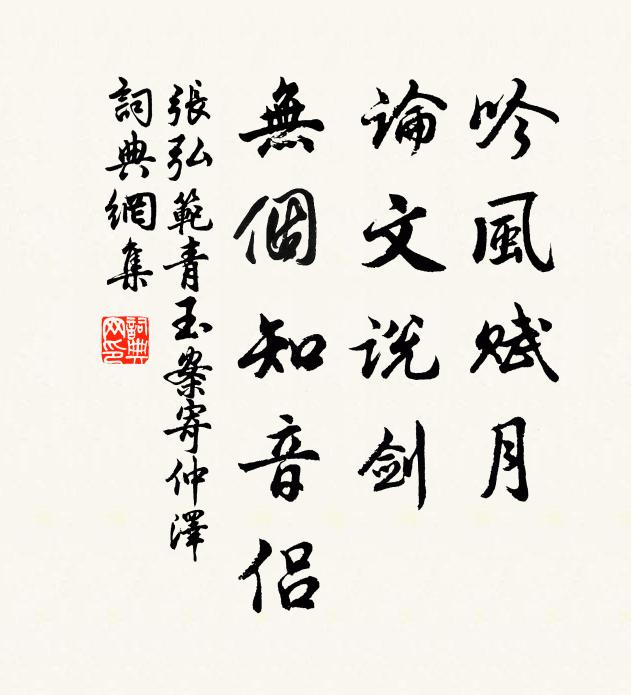 吟風赋月
論文说剑
無個知音侣
張弘範青玉案寄仲澤
詞典網集
詞典网印